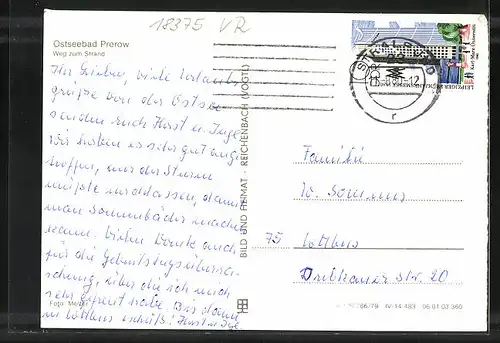 18375 VR
Ostseebad Prerow
Weg zum Strand
Ihr Lieben, viele Urlaubs-
grüße von der Ostsee
senden euch Horst u. Inge
Wir haben es sehr gut ange-
troffen, nur der Sturm
müßte nachlassen, damit
man Sonnenbäder machen
kann. Vielen Dank auch
für die Geburtstagsüberra-
schung, über die ich mich
sehr gefreut habe. Bis dann
in Cottbus Horst u. Inge
Foto:
BILD UND HEIMAT · REICHENBACH (VOGTL)
LEIPZIGER
DDR
-12
r
Familie
W. Sommer
75 Cottbus
Drebkauer Str. 20
766/79 IV-14-483 06 01 03 360